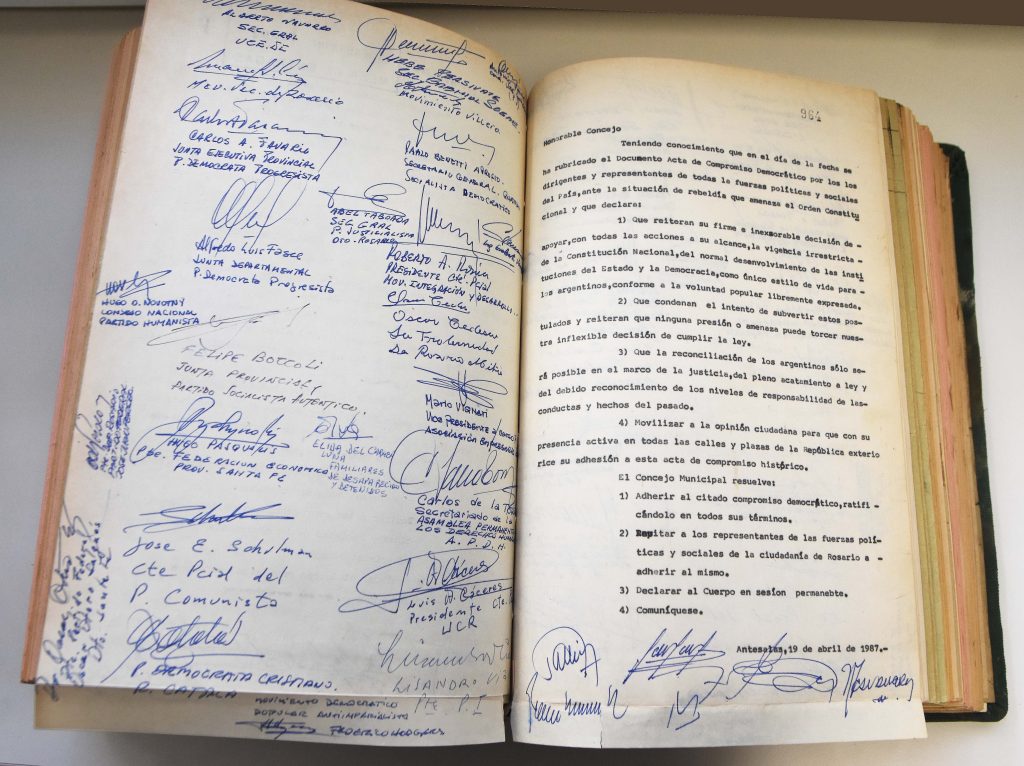 ALBERTO NAVARRO
SEC. GRAL
UCE. DE
HEBE
MOVIMIENTO Villero
CARLOS A. FAVARIO
JUNTA EJECUTIVA PROVINCIAL
P. DEMOCRATA PROGRESISTA
PABLO BENETTI
SECRETARIO GENERAL
SOCIALISTA DEMOCRATICO
ABEL TABOADA
SEC GRAL
P. JUSTICIALISTA
DTO. ROSARIO
Alfredo Luis Fasce
JUNTA DEPARTAMENTAL
P. Democrata Progresista
ROBERTO A.
PRESIDENTE Cte. Pcial
MOV. INTEGRACIÓN Y DESARROLLO
HUGO O. NOVOTNY
CONSEJO NACIONAL
PARTIDO HUMANISTA
Oscar
La Fraternidad
De Rosario Mitre
FELIPE BOCCOLI
JUNTA PROVINCIAL
PARTIDO SOCIALISTA AUTENTICO.
Mario
VICE PRESIDENTE
ASOCIACIÓN EMPRESARIA
HUGO PASQUALIS
PDE. FEDERACION ECONOMICA
PROV. SANTA FE
ELIDA DEL CARMEN
LUNA
FAMILIARES
DE DESAPARECIDOS
Y DETENIDOS
Carlos de la
Secretariado de la
ASAMBLEA PERMANENTE
LOS DERECHOS HUMA
A. P. D. H.
Jose E. Schulman
Cte Pcial del
P. Comunista
Luis A. Cáceres
Presidente Cte.
UCR
P. DEMOCRATA CRISTIANO.
R. CATALA
LISANDRO
Pte. P. I
MOVIMIENTO DEMOCRATICO
POPULAR ANTIIMPERIALISTA
FEDERICO HODGERS
964
Honorable Concejo
Teniendo conocimiento que en el día de la fecha se
ha rubricado el Documento Acta de Compromiso Democrático por los los
dirigentes y representantes de todas la fuerzas políticas y sociales
del País,ante la situación de rebeldía que amenaza el Orden Constitu
cional y que declara:
1) Que reiteran su firme e inexorable decisión de -
apoyar,con todas las acciones a su alcance,la vigencia irrestricta -
de la Constitución Nacional,del normal desenvolvimiento de las insti
tuciones del Estado y la Democracia,como único estilo de vida para -
los argentinos,conforme a la voluntad popular libremente expresada.
2) Que condenan el intento de subvertir estos pos-
tulados y reiteran que ninguna presión o amenaza puede torcer nues-
tra inflexible decisión de cumplir la ley.
3) Que la reconciliación de los argentinos sólo se-
rá posible en el marco de la justicia,del pleno acatamiento a ley y
del debido reconocimiento de los niveles de responsabilidad de las-
conductas y hechos del pasado.
4) Movilizar a la opinión ciudadana para que con su
presencia activa en todas las calles y plazas de la República exterio
rice su adhesión a esta acta de compromiso histórico.
El Concejo Municipal resuelve:
1) Adherir al citado compromiso democrático,ratifi-
cándolo en todos sus términos.
2) Invitar a los representantes de las fuerzas polí-
ticas y sociales de la ciudadanía de Rosario a -
adherir al mismo.
3) Declarar al Cuerpo en sesión permanebte.
4) Comuníquese.
Antesalas,19 de abril de 1987.-